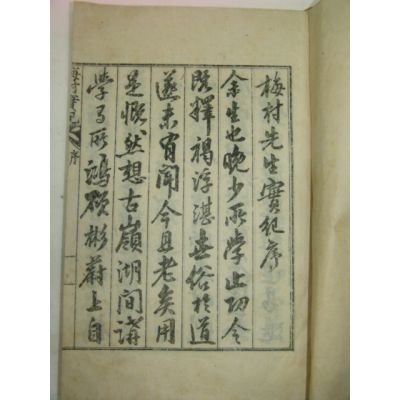 梅村先生實紀序
余生也晚少所學止功令
既釋褐浮湛世俗於道
蓋未有聞今且老矣用
是慨然想古嶺湖間講
學之所鴻碩彬蔚上自
梅村實紀 序 一